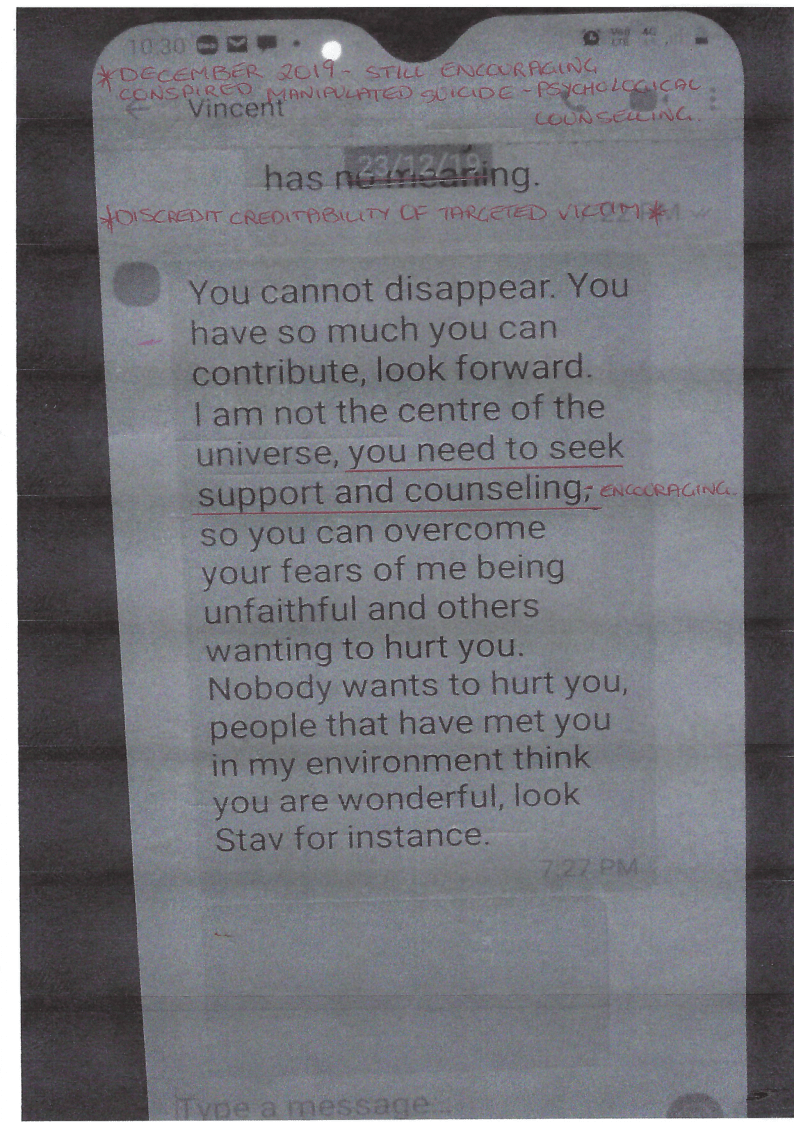 10:30
VoD 4G
LTE
*DECEMBER 2019 - STILL ENCOURAGING
CONSPIRED MANIPULATED SUICIDE - PSYCHOLOGICAL
COUNSELLING.
Vincent
23/12/19
has no meaning.
*DISCREDIT CREDITABILITY OF TARGETED VICTIM*
You cannot disappear. You
have so much you can
contribute, look forward.
I am not the centre of the
universe, you need to seek
support and counseling,- ENCOURAGING.
so you can overcome
your fears of me being
unfaithful and others
wanting to hurt you.
Nobody wants to hurt you,
people that have met you
in my environment think
you are wonderful, look
Stav for instance.
7:27 PM
Type a message...